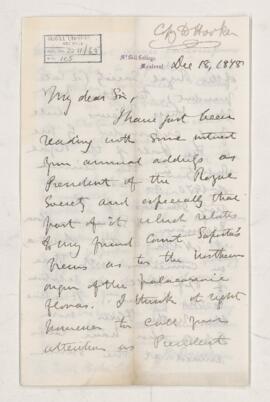 McGill College,
Montreal,
Dec 18, 1878
My dear Sir,
I have just been
reading with some interest
your annual address as
President of the Royal
Society and especially that
part of it which relates
to my friend Count Saporta's
views as to the Northern
origin of the palaeozoic
floras. I think it right
however to call your
attention as President